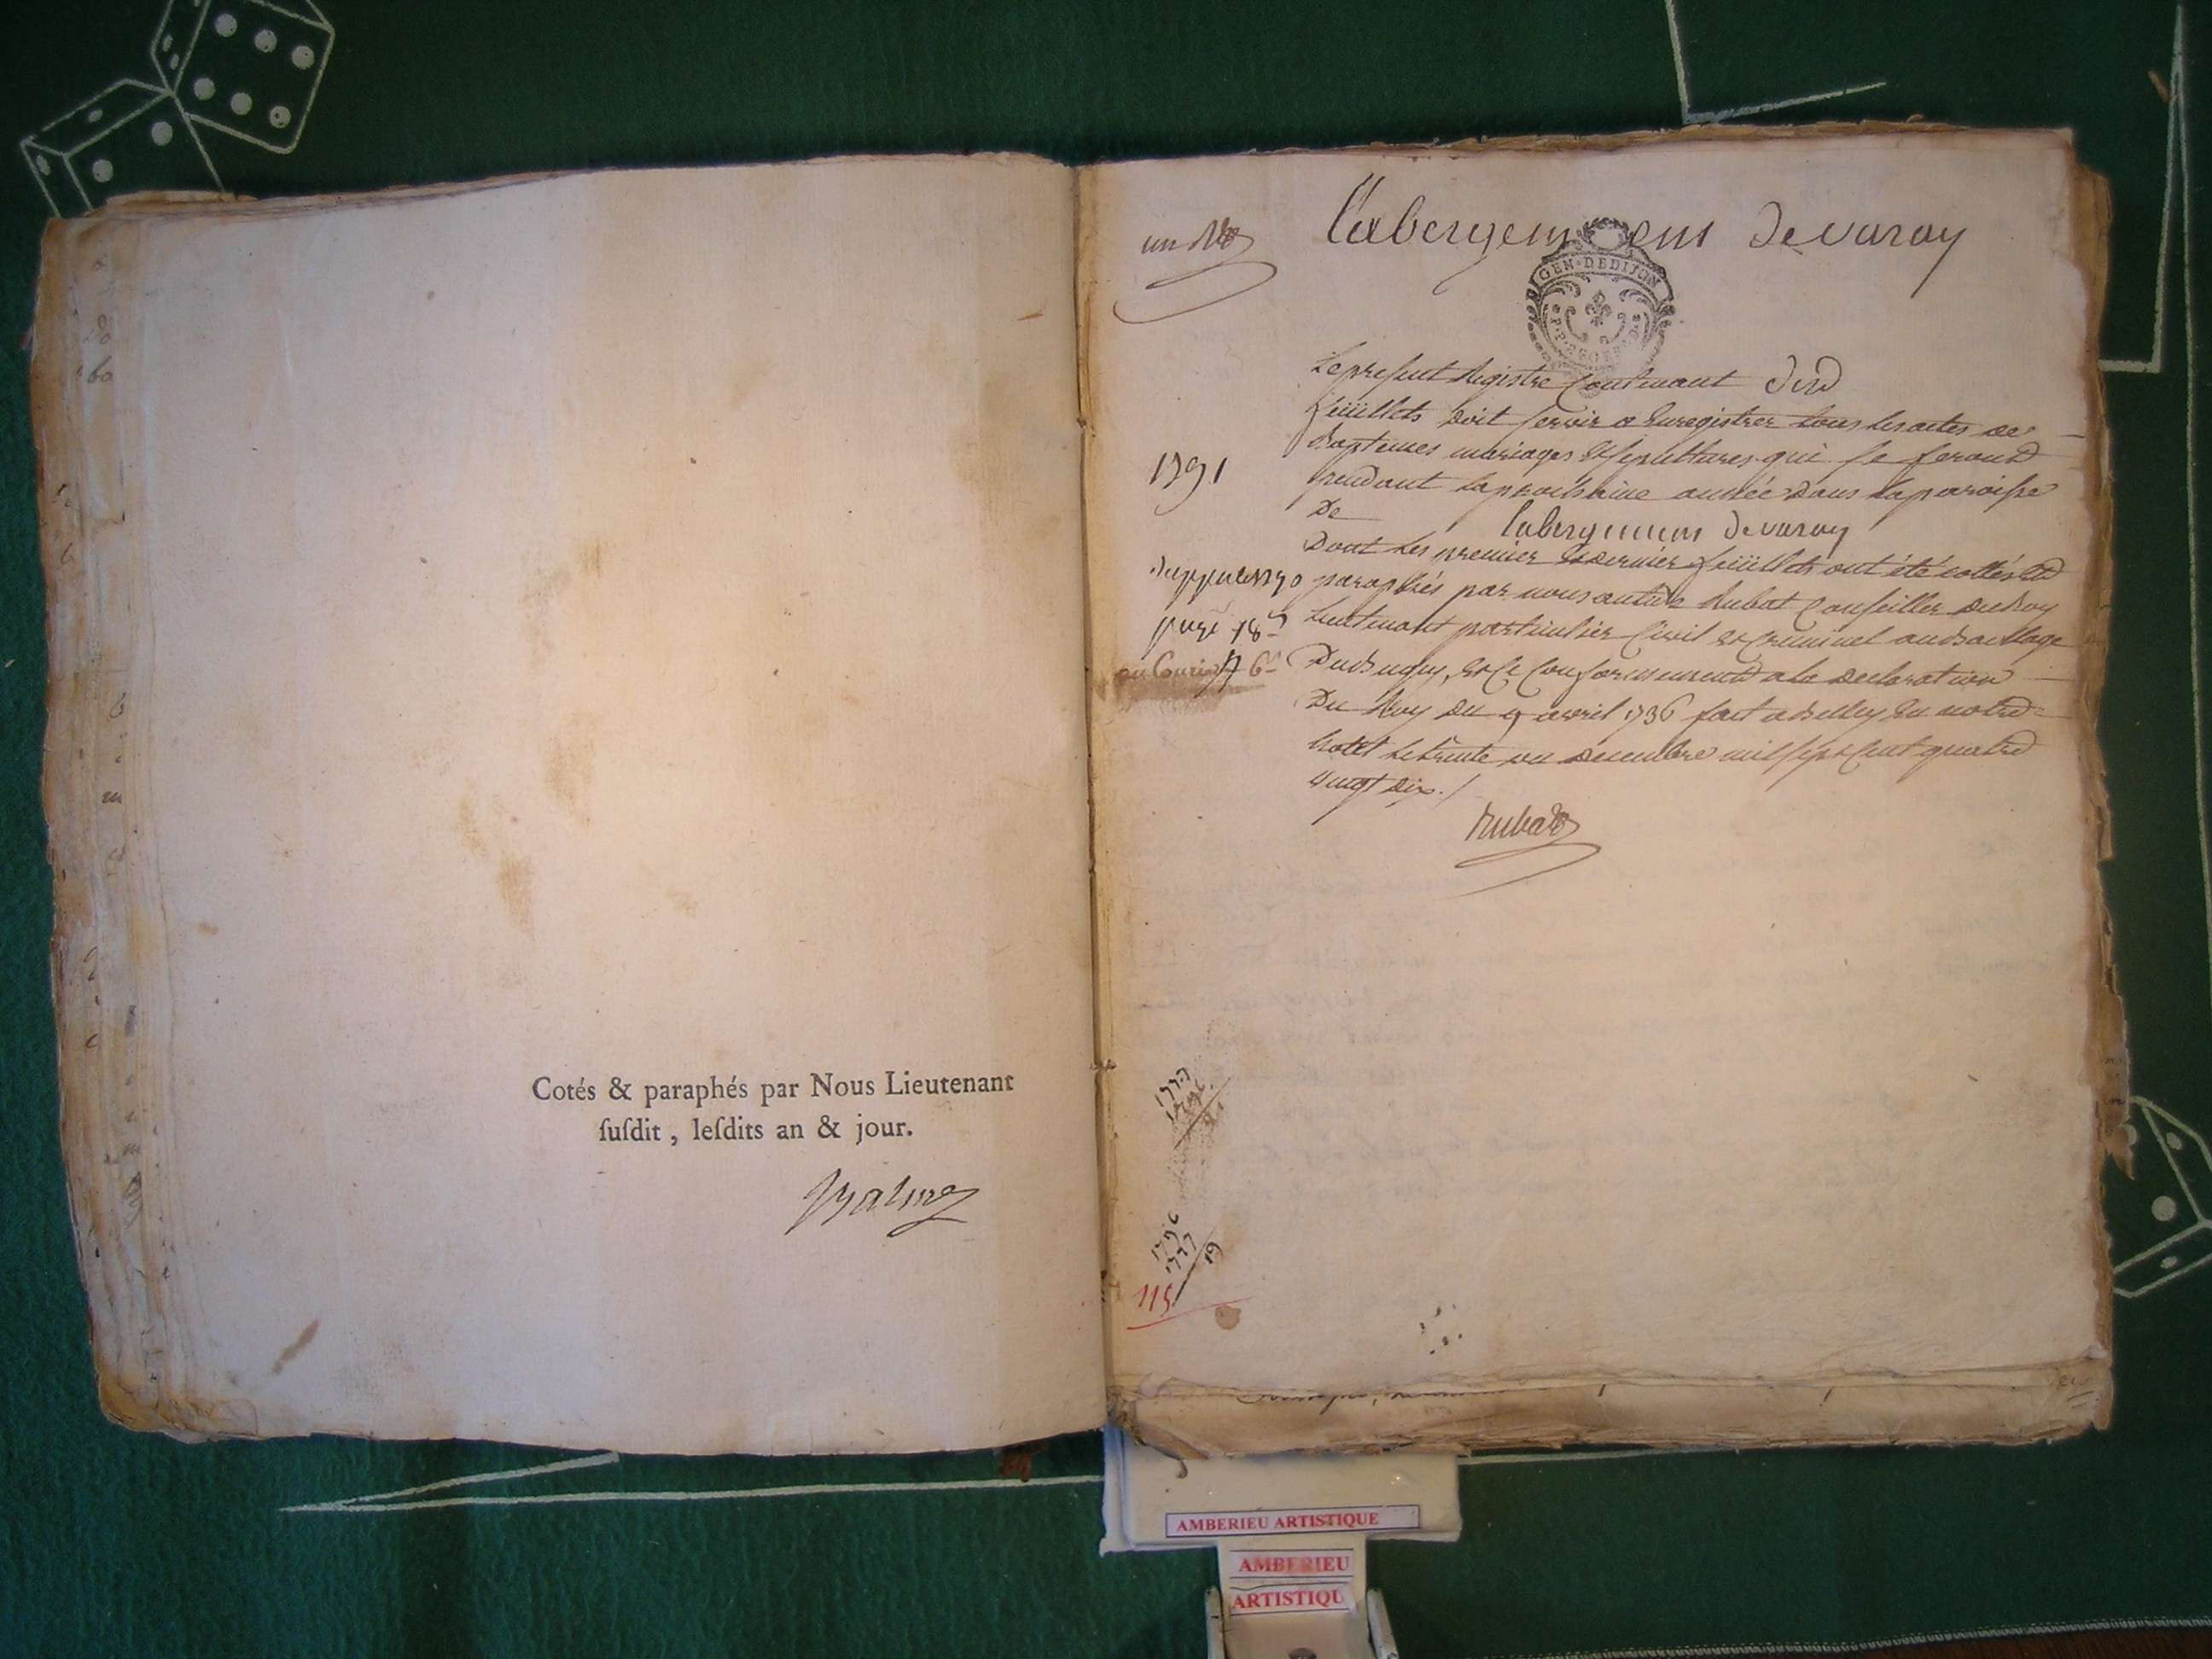 Cotés & paraphés par Nous Lieutenant
ſuſdit, leſdits an & jour.
un
l'abergement de varay
GEN·DEDIJON
1791
Le present Registre Contenant
feüillets doit servir a Enregistrer tous les actes de
Baptemes mariages & sepultures qui se feront
pendant la prochaine année dans la paroisse
De
labergement de varay
Dont les premier & dernier feüillets ont été cottés Et
paraphés par nous Rubat Conseiller du Roy
Lieutenant particulier Civil et Criminel au Bailliage
Du Bugey, et ce Conformement a la declaration
Du Roy du 9 avril 1736 fait a Belley En notre
hotel le trente un decembre mil sept cent quatre
vingt dix./
Rubat
19
115
AMBERIEU ARTISTIQUE
AMBERIEU
ARTISTIQU